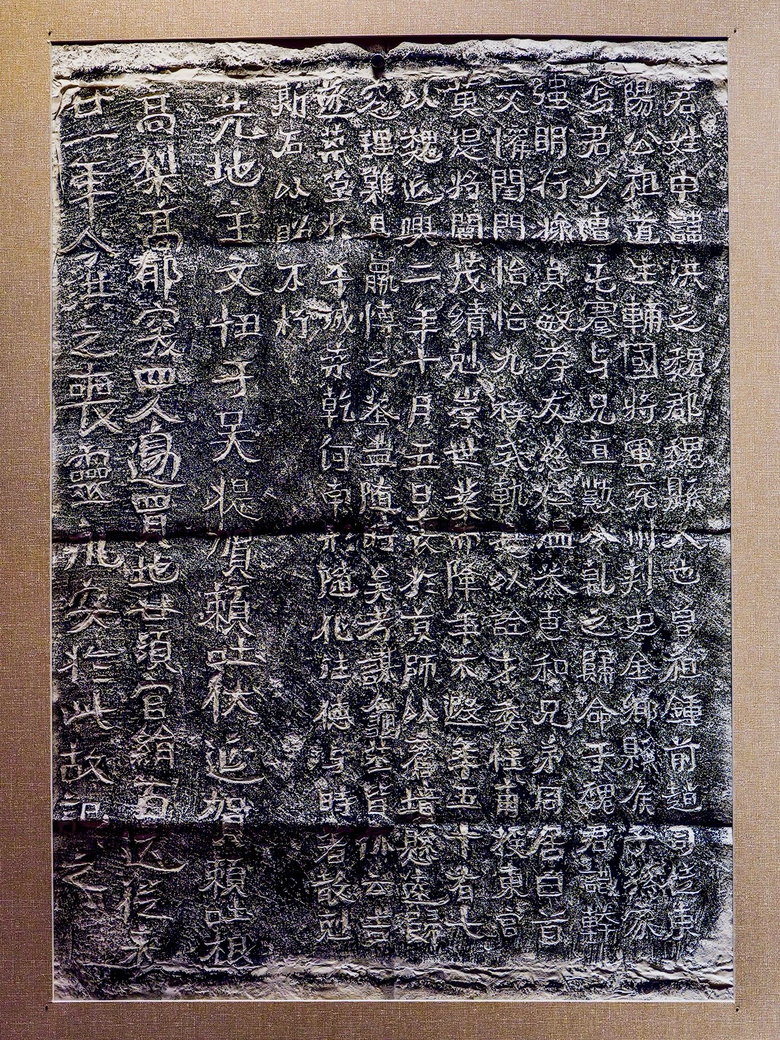 君姓申諱洪之魏郡魏縣人也曾祖鍾前趙司徒東
陽公祖道生輔國將軍兗州刺史金鄉縣侯子孫家
焉君少遭屯蹇与兄直懃令乹之歸命于魏君識幹
强明行操貞敏孝友慈仁温恭惠和兄弟同居白首
交懽閨門怡怡九族式軌是以詮才委任甫授東宮
莫堤將闡茂績剋崇世業而降年不遐年五十有七
以魏延興二年十月五日喪於京師以舊墳懸遠歸
窆理難且羸博之葬盖隨時矣考謀龜筮皆休云吉
遂築堂於平城桑乾河南形隨化往德与時著敢剋
斯石以昭不朽
先地主文忸于吴提賀賴吐伏延賀賴吐根
高梨高郁突四人邊買地廿頃官絹百匹從來
廿一年今洪之喪靈永安於此故記之